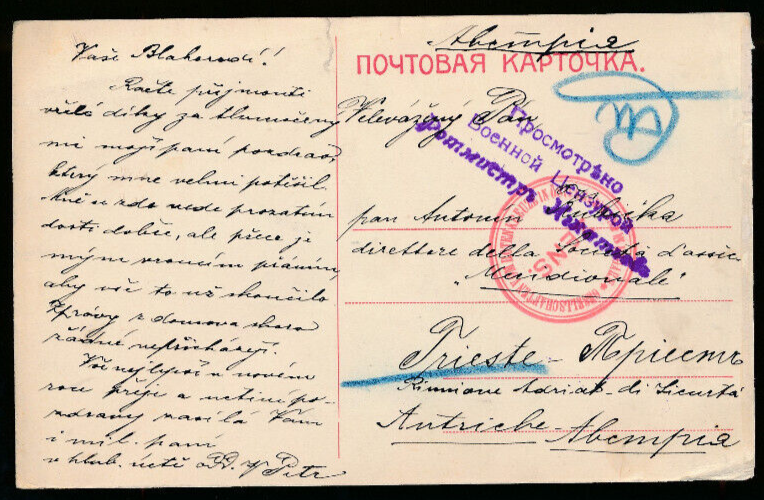 Vaše Blahorodí!
Račte přijmouti
vřelé díky za tlumočený
mi mojí paní pozdrav,
který mne velmi potěšil.
Mně se zde vede prozatím
dosti dobře, ale přece je
mým vroucím přáním,
aby vše to už skončilo
Zprávy z domova skoro
žádné nepřicházejí.
Vše nejlepší v novém
roce přeje a uctivé po-
zdravy zasílá Vám
i mil. paní
v hlub. úctě Petr
Австрія
ПОЧТОВАЯ КАРТОЧКА.
Velevážený Pán
Просмотрѣно
Военной Цензурой
Ротмистръ
pan Antonín
direttore della Società d'assic.
"Meridionale"
Trieste - Тріестъ
Riunione Adriat. di Sicurtà
Autriche - Австрія